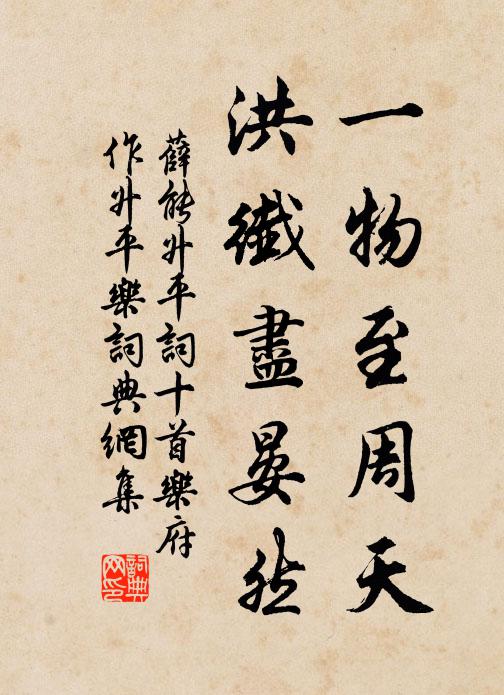 一物至周天
洪纖盡晏然
薛能升平詞十首樂府
作升平樂詞典網集
詞典
网印